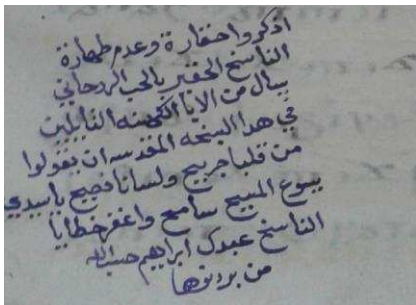 اذكروا حقارة وعدم طهارة
الناسخ الحقير بالحب الروحاني
يسال من الابا الكهنه النايبين
في هدا البيعه المقدسه ان يقولوا
من قلبا جريح ولسانا فصيح ياسيدي
يسوع المسيح سامح واغفر خطايا
الناسخ عبدك ابراهيم
من